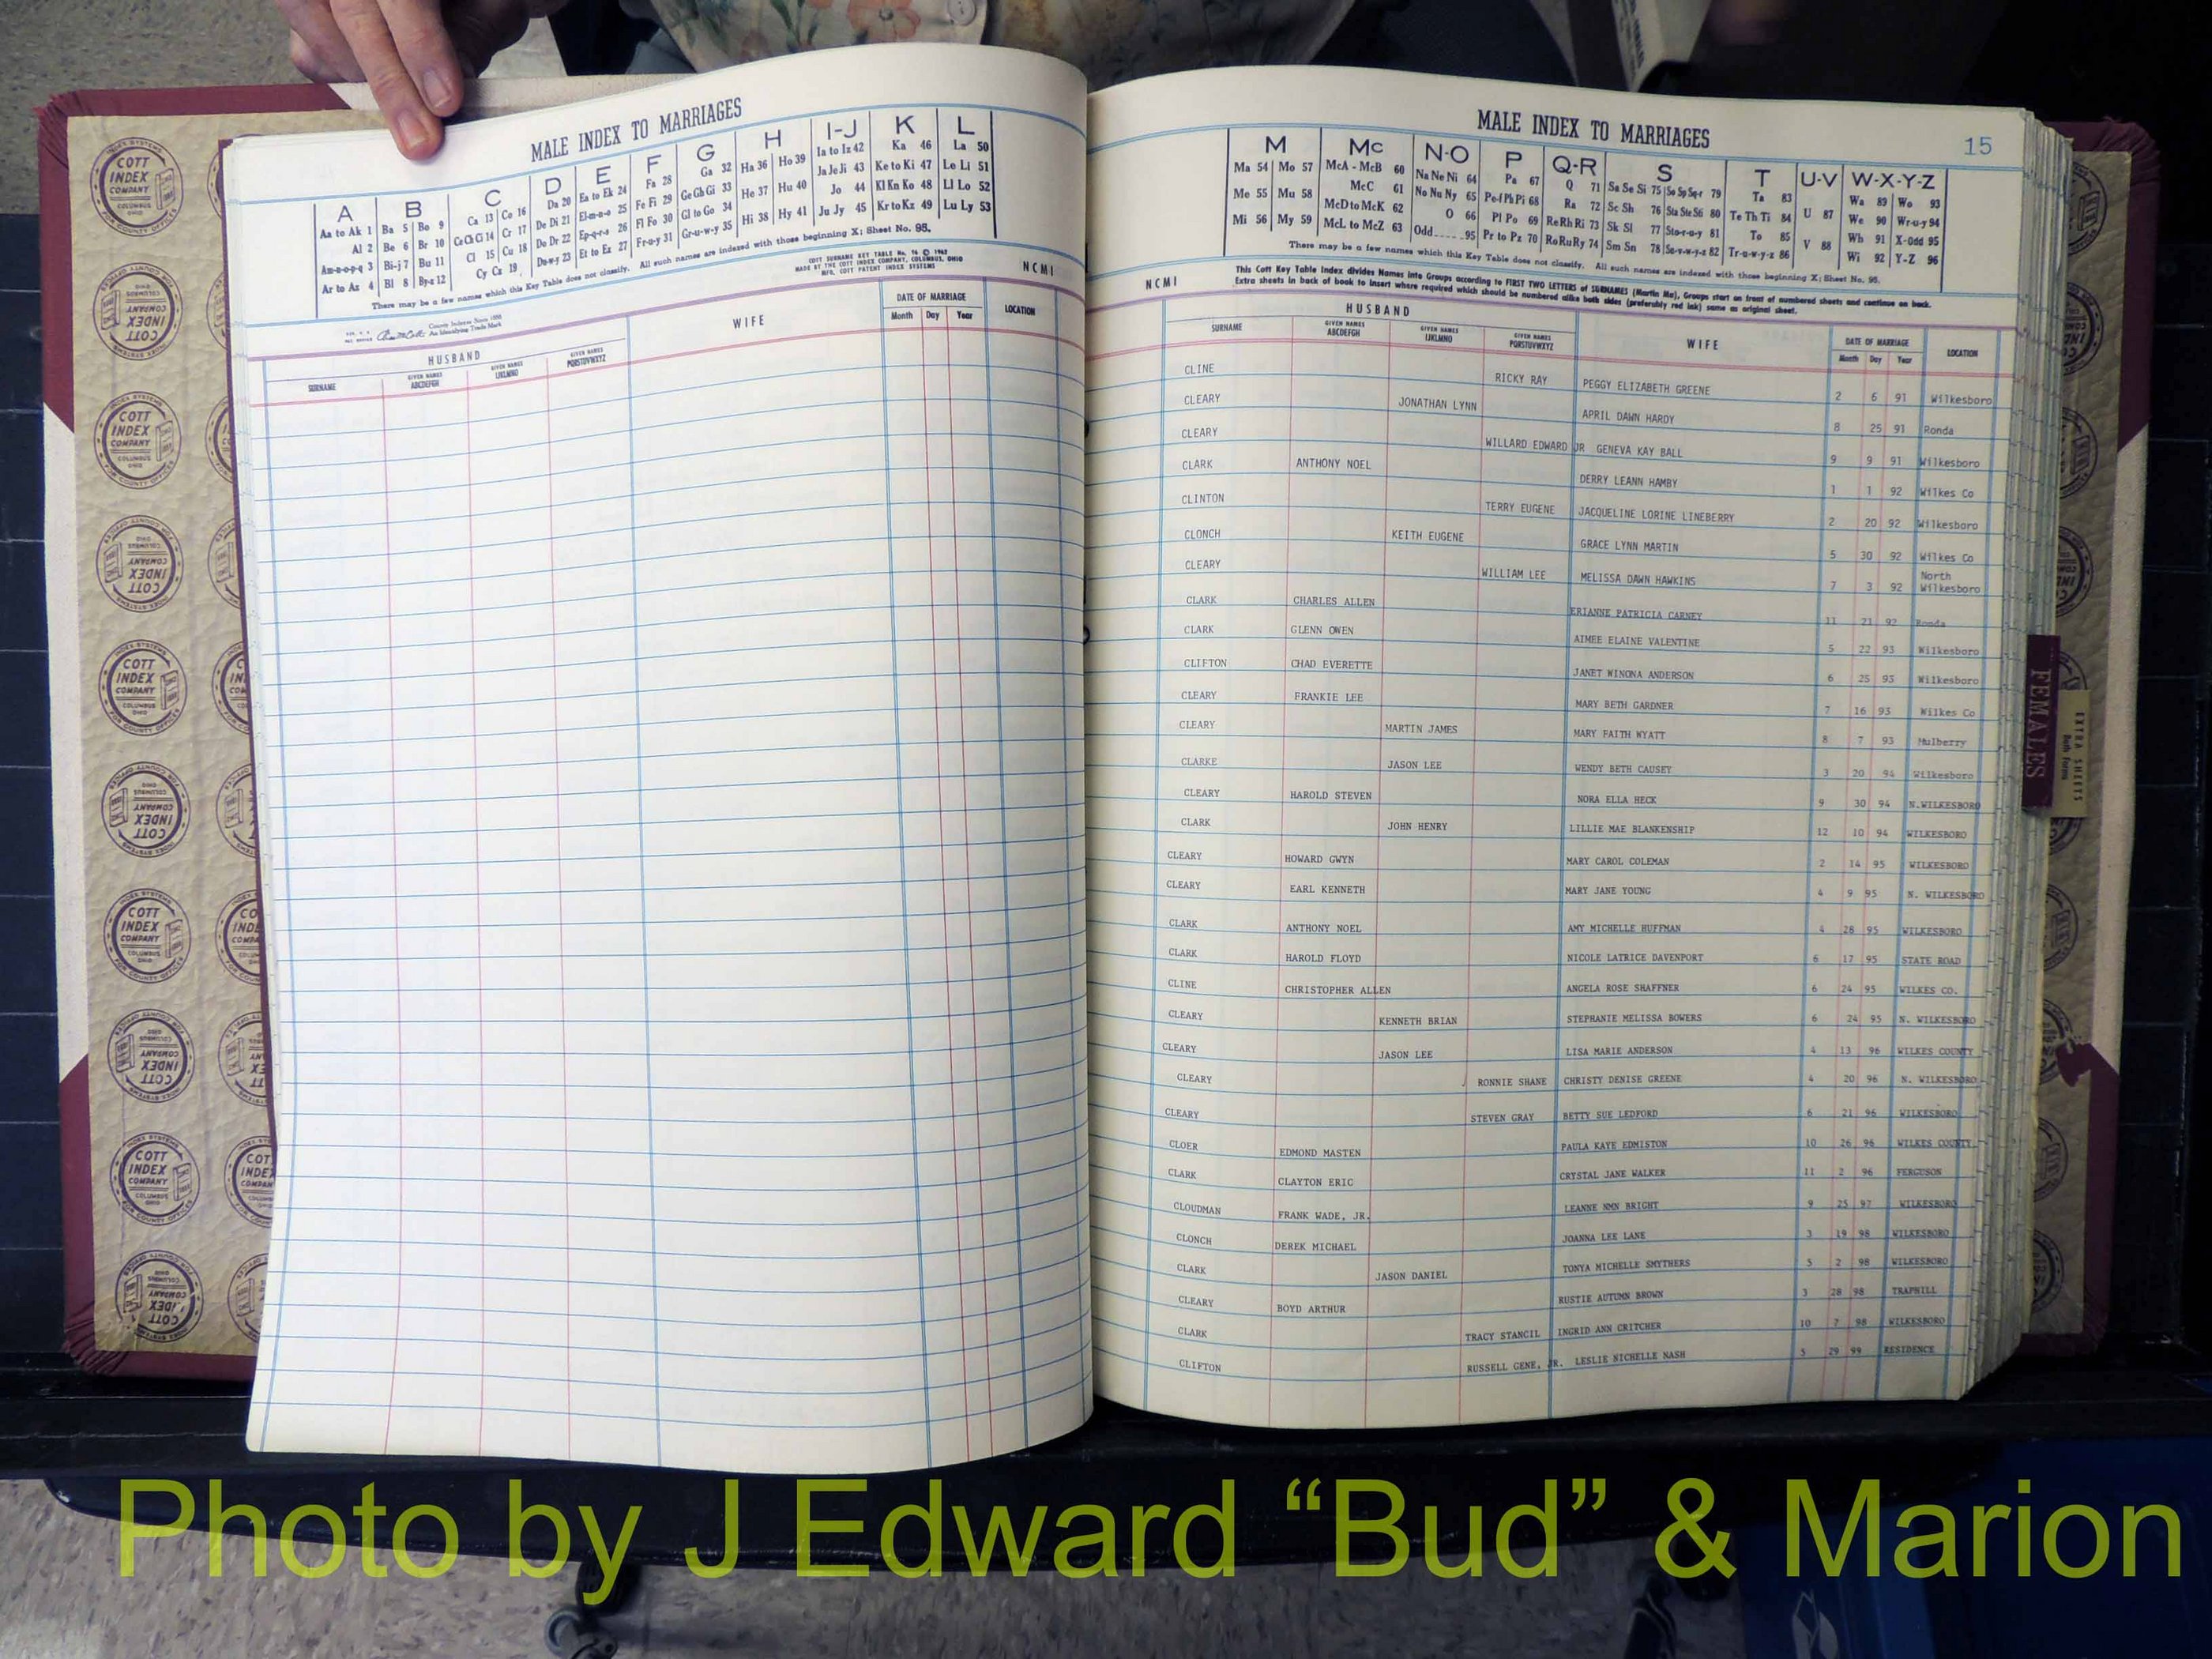 MALE INDEX TO MARRIAGES
A B C D E F G H I-J K L
Aa to Ak 1 Ba 5 Bo 9 Ca 13 Co 16 Da 20 Ea to Ek 24 Fa 28 Ga 32 Ha 36 Ho 39 Ia to Iz 42 Ka 46 La 50
Al 2 Be 6 Br 10 Ce Ch Ci 14 Cr 17 De Di 21 El-m-n-o 25 Fe Fi 29 Ge Gh Gi 33 He 37 Hu 40 Ja Je Ji 43 Ke to Ki 47 Le Li 51
Am-n-o-p-q 3 Bi-j 7 Bu 11 Cl 15 Cu 18 Do Dr 22 Ep-q-r-s 26 Fl Fo 30 Gl to Go 34 Hi 38 Hy 41 Jo 44 Kl Kn Ko 48 Ll Lo 52
Ar to Az 4 Bl 8 By-z 12 Cy Cz 19 Du-w-y 23 Et to Ez 27 Fr-u-y 31 Gr-u-w-y 35 Ju Jy 45 Kr to Kz 49 Lu Ly 53
There may be a few names which this Key Table does not classify. All such names are indexed with those beginning X; Sheet No. 95.
COTT SURNAME KEY TABLE
MADE BY THE COTT INDEX COMPANY, COLUMBUS, OHIO
MFG. COTT PATENT INDEX SYSTEMS
NCMI
County Indexes Since 1888
An Identifying Trade Mark
HUSBAND WIFE DATE OF MARRIAGE LOCATION
SURNAME GIVEN NAMES ABCDEFGH GIVEN NAMES IJKLMNO GIVEN NAMES PQRSTUVWXYZ Month Day Year
MALE INDEX TO MARRIAGES 15
M Mc N-O P Q-R S T U-V W-X-Y-Z
Ma 54 Mo 57 McA - McB 60 Na Ne Ni 64 Pa 67 Q 71 Sa Se Si 75 So Sp Sq-r 79 Ta 83 Wa 89 Wo 93
Me 55 Mu 58 McC 61 No Nu Ny 65 Pe-f Ph Pi 68 Ra 72 Sc Sh 76 Sta Ste Sti 80 Te Th Ti 84 U 87 We 90 Wr-u-y 94
Mi 56 My 59 McD to McK 62 O 66 Pl Po 69 Re Rh Ri 73 Sk Sl 77 Sto-r-u-y 81 To 85 V 88 Wh 91 X-Odd 95
McL to McZ 63 Odd 95 Pr to Pz 70 Ro Ru Ry 74 Sm Sn 78 Su-v-w-y-z 82 Tr-u-w-y-z 86 Wi 92 Y-Z 96
There may be a few names which this Key Table does not classify. All such names are indexed with those beginning X; Sheet No. 95.
NCMI
This Cott Key Table Index divides Names into Groups according to FIRST TWO LETTERS of SURNAMES (Martin Ma), Groups start on front of numbered sheets and continue on back.
Extra sheets in back of book to insert where required which should be numbered alike both sides (preferably red ink) same as original sheet.
HUSBAND WIFE DATE OF MARRIAGE LOCATION
SURNAME GIVEN NAMES ABCDEFGH GIVEN NAMES IJKLMNO GIVEN NAMES PQRSTUVWXYZ Month Day Year
CLINE RICKY RAY PEGGY ELIZABETH GREENE 2 6 91 Wilkesboro
CLEARY JONATHAN LYNN APRIL DAWN HARDY 8 25 91 Ronda
CLEARY WILLARD EDWARD JR GENEVA KAY BALL 9 9 91 Wilkesboro
CLARK ANTHONY NOEL DERRY LEANN HAMBY 1 1 92 Wilkes Co
CLINTON TERRY EUGENE JACQUELINE LORINE LINEBERRY 2 20 92 Wilkesboro
CLONCH KEITH EUGENE GRACE LYNN MARTIN 5 30 92 Wilkes Co
CLEARY WILLIAM LEE MELISSA DAWN HAWKINS 7 3 92 North Wilkesboro
CLARK CHARLES ALLEN ERIANNE PATRICIA CARNEY 11 21 92 Ronda
CLARK GLENN OWEN AIMEE ELAINE VALENTINE 5 22 93 Wilkesboro
CLIFTON CHAD EVERETTE JANET WINONA ANDERSON 6 25 93 Wilkesboro
CLEARY FRANKIE LEE MARY BETH GARDNER 7 16 93 Wilkes Co
CLEARY MARTIN JAMES MARY FAITH WYATT 8 7 93 Mulberry
CLARKE JASON LEE WENDY BETH CAUSEY 3 20 94 Wilkesboro
CLEARY HAROLD STEVEN NORA ELLA HECK 9 30 94 N.WILKESBORO
CLARK JOHN HENRY LILLIE MAE BLANKENSHIP 12 10 94 WILKESBORO
CLEARY HOWARD GWYN MARY CAROL COLEMAN 2 14 95 WILKESBORO
CLEARY EARL KENNETH MARY JANE YOUNG 4 9 95 N. WILKESBORO
CLARK ANTHONY NOEL AMY MICHELLE HUFFMAN 4 28 95 WILKESBORO
CLARK HAROLD FLOYD NICOLE LATRICE DAVENPORT 6 17 95 STATE ROAD
CLINE CHRISTOPHER ALLEN ANGELA ROSE SHAFFNER 6 24 95 WILKES CO.
CLEARY KENNETH BRIAN STEPHANIE MELISSA BOWERS 6 24 95 N. WILKESBORO
CLEARY JASON LEE LISA MARIE ANDERSON 4 13 96 WILKES COUNTY
CLEARY RONNIE SHANE CHRISTY DENISE GREENE 4 20 96 N. WILKESBORO
CLEARY STEVEN GRAY BETTY SUE LEDFORD 6 21 96 WILKESBORO
CLOER EDMOND MASTEN PAULA KAYE EDMISTON 10 26 96 WILKES COUNTY
CLARK CLAYTON ERIC CRYSTAL JANE WALKER 11 2 96 FERGUSON
CLOUDMAN FRANK WADE, JR. LEANNE NMN BRIGHT 9 25 97 WILKESBORO
CLONCH DEREK MICHAEL JOANNA LEE LANE 3 19 98 WILKESBORO
CLARK JASON DANIEL TONYA MICHELLE SMYTHERS 5 2 98 WILKESBORO
CLEARY BOYD ARTHUR RUSTIE AUTUMN BROWN 3 28 98 TRAPHILL
CLARK TRACY STANCIL INGRID ANN CRITCHER 10 7 98 WILKESBORO
CLIFTON RUSSELL GENE, JR. LESLIE NICHELLE NASH 5 29 99 RESIDENCE
FEMALES
EXTRA SHEETS
Both Forms
COTT INDEX COMPANY
COLUMBUS OHIO
INDEX SYSTEMS
FOR COUNTY OFFICES
Photo by J Edward “Bud” & Marion